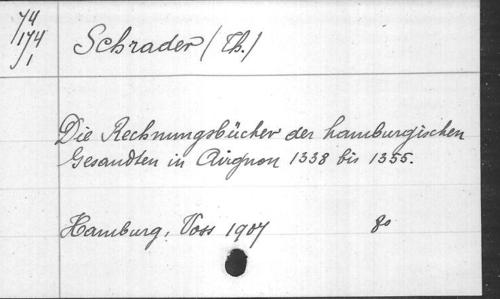 74
174
1
Schrader (Th.)
Die Rechnungsbücher der hamburgischen
Gesandten in Avignon 1338 bis 1355.
Hamburg, Voss 1907 8o